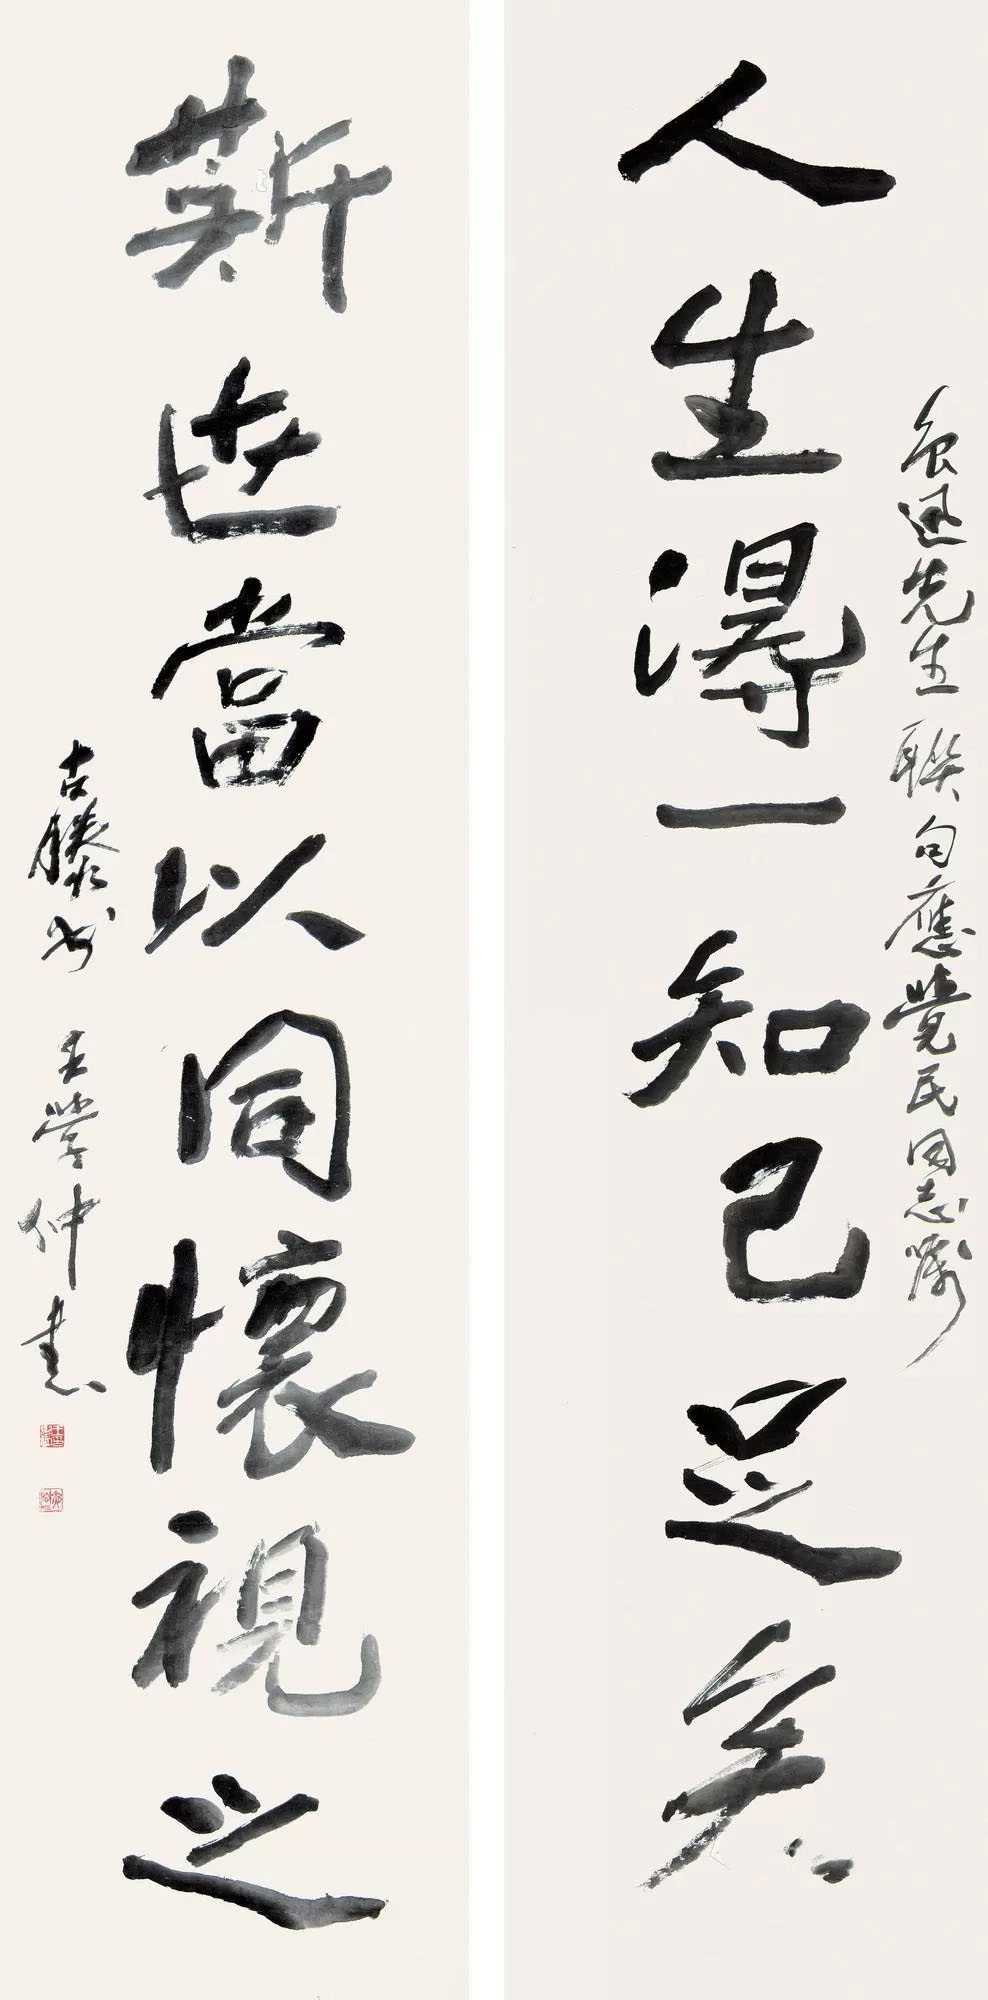 人生得一知己足矣
魯迅先生聯句應覺民同志囑
斯世當以同懷視之
古滕州 王學仲書